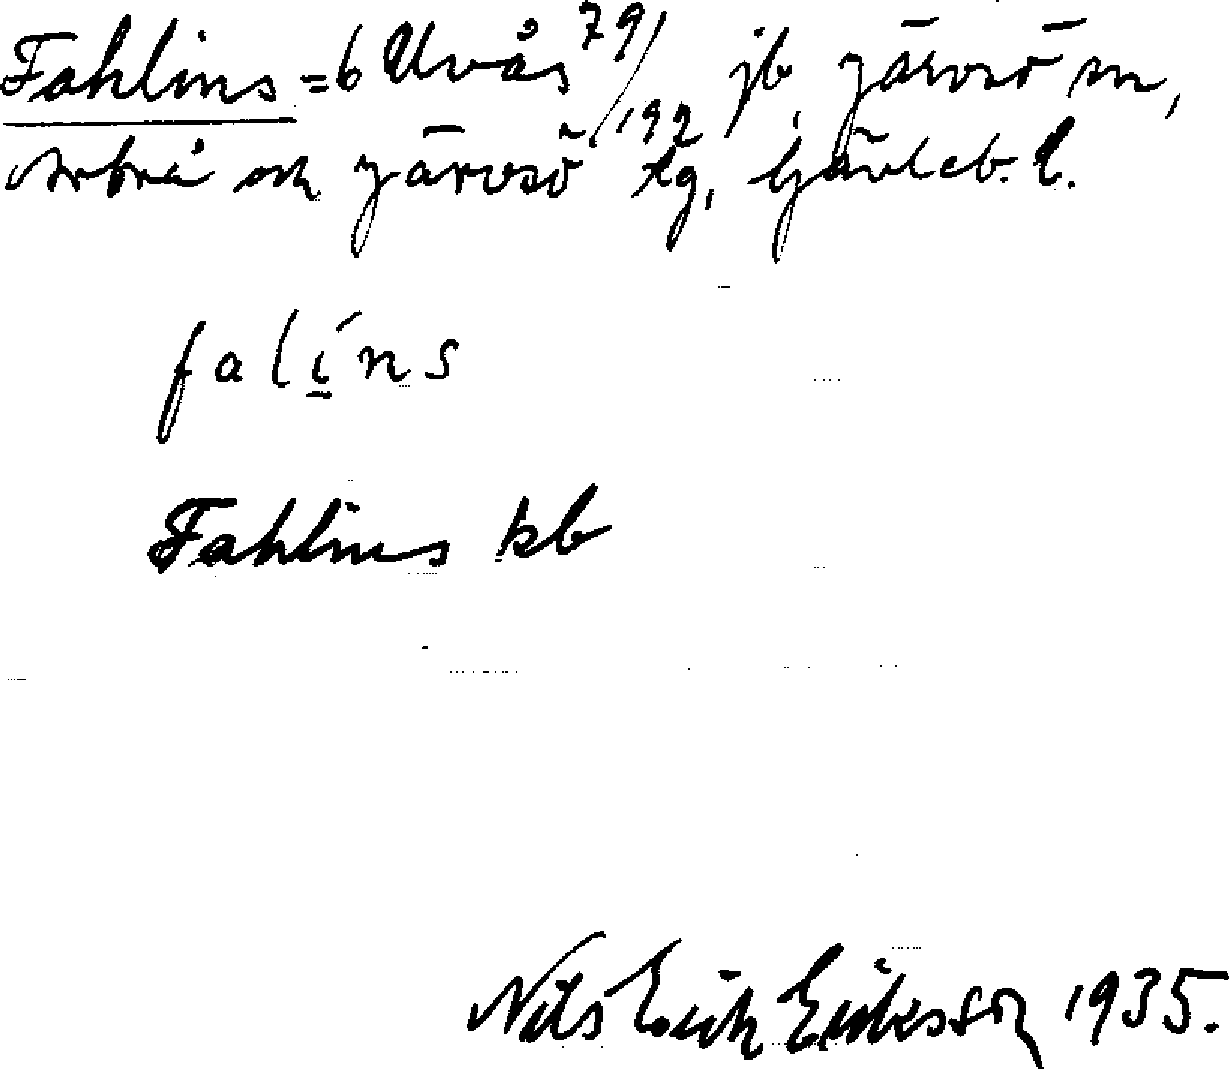 Fahlins = b Ulvås 79/192 jb, Järvsö sn,
Arbrå och Järvsö tg, Gävleb. l.
falíns
Fahlins kb
Nils Erik Eriksson 1935.